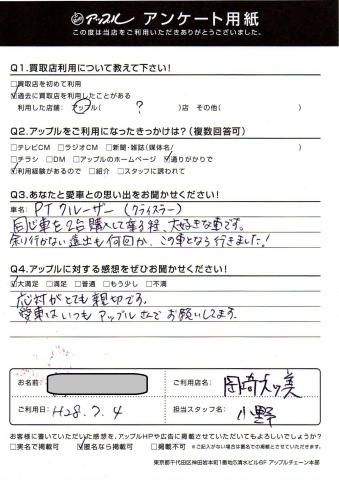 アップル アンケート用紙
この度は当店をご利用いただきありがとうございました。
Q1.買取店利用について教えて下さい!
□買取店を初めて利用
☑過去に買取店を利用したことがある
利用した店舗: アップル( ? )店 その他( )
Q2.アップルをご利用になったきっかけは?(複数回答可)
□テレビCM □ラジオCM □新聞・雑誌(媒体名/ )
□チラシ □DM □アップルのホームページ ☑通りがかりで
☑利用経験があるので □紹介 □スタッフに誘われて
Q3.あなたと愛車との思い出をお聞かせください!
車名: PTクルーザー (クライスラー)
同じ車を2台購入して乗る程、大好きな車です。
余り行かない遠出も何回か、この車となら行きました!
Q4.アップルに対する感想をぜひお聞かせください!
☑大満足 □満足 □普通 □もう少し □不満
応対がとても親切です。
愛車はいつもアップルさんでお願いしてます。
お名前:
ご利用店名: 岡崎大美
ご利用日: H28.7.4
担当スタッフ名: 小野
お客様に書いていただいた感想を、アップルHPや広告に掲載させていただいてもよろしいでしょうか?
□実名で掲載可 ☑匿名なら掲載可 □掲載不可 ※ご記入がない場合は匿名での掲載とさせていただきます。
東京都千代田区神田岩本町1番地5清水ビル6F アップルチェーン本部